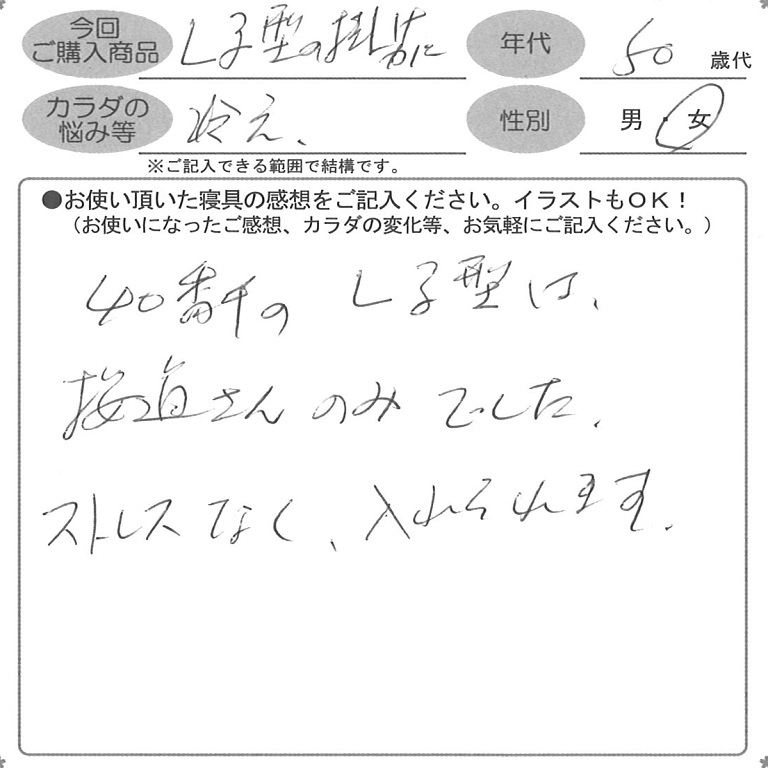 今回
ご購入商品
L字型の掛カバー
年代
50 歳代
カラダの
悩み等
冷え、
性別
男・女
※ご記入できる範囲で結構です。
●お使い頂いた寝具の感想をご記入ください。イラストもOK!
(お使いになったご感想、カラダの変化等、お気軽にご記入ください。)
40番手の L字型は、
さんのみでした。
ストレスなく、入れられます。